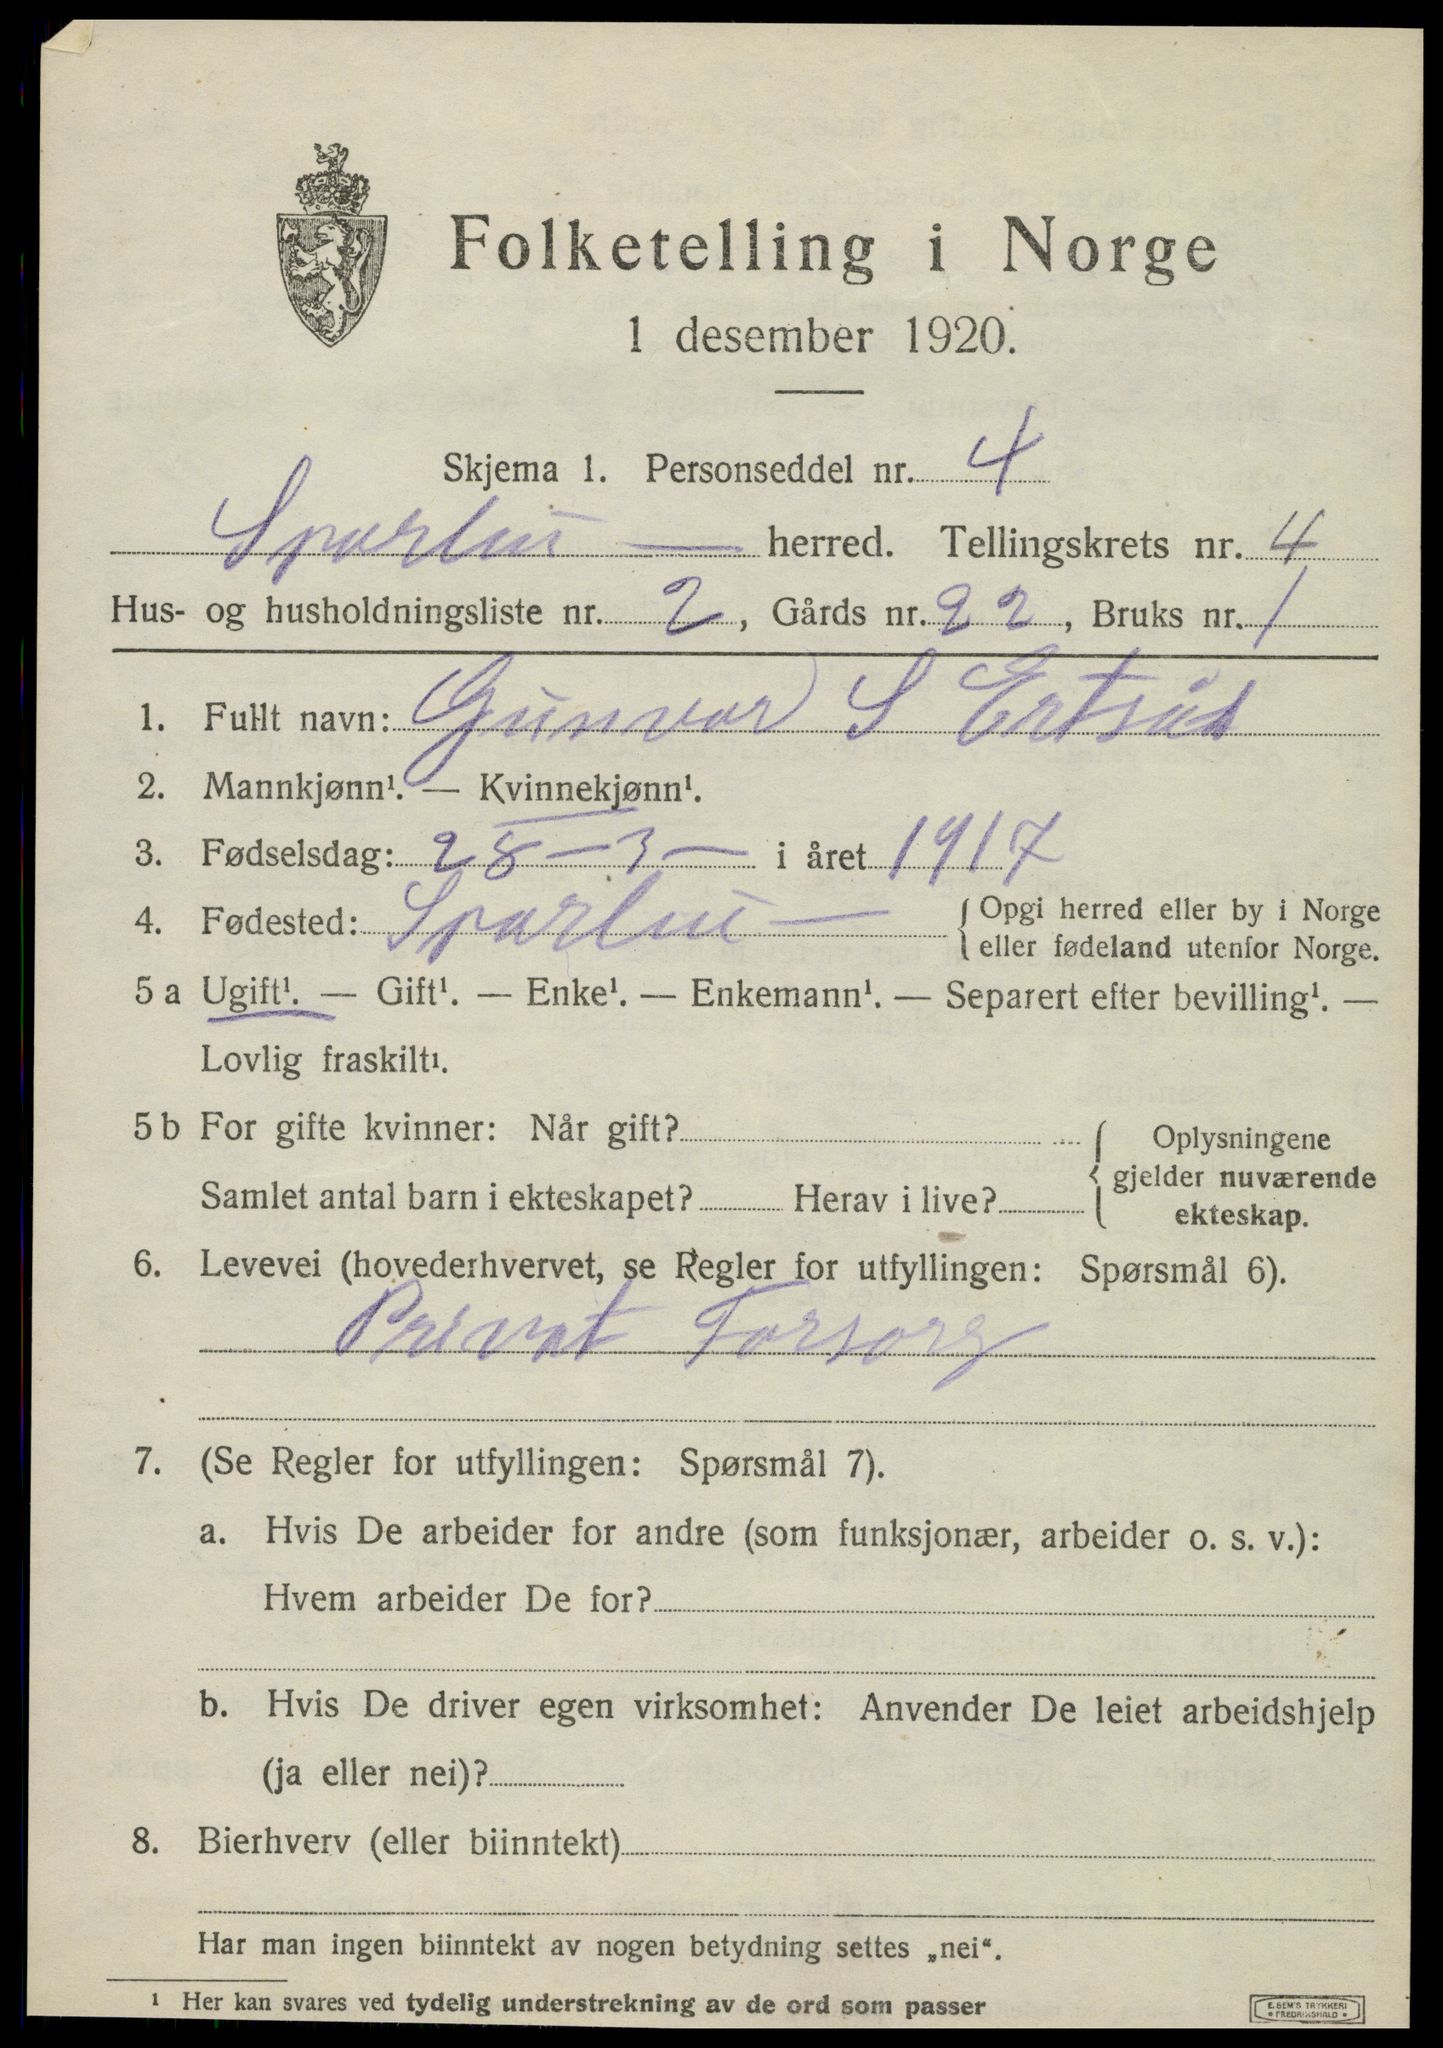 Folketelling i Norge
1 desember 1920.
Skjema 1. Personseddel nr. 4
Sparbu — herred. Tellingskrets nr. 4
Hus- og husholdningsliste nr. 2, Gårds nr. 22, Bruks nr. 1
1. Fullt navn: Gunvor S Ertsås
2. Mannkjønn¹. — Kvinnekjønn¹.
3. Fødselsdag: 28 — 3 — i året 1917
4. Fødested: Sparbu —
{ Opgi herred eller by i Norge
eller fødeland utenfor Norge.
5 a Ugift¹. — Gift¹. — Enke¹. — Enkemann¹. — Separert efter bevilling¹. —
Lovlig fraskilt¹.
5 b For gifte kvinner: Når gift?
Samlet antal barn i ekteskapet? Herav i live?
{ Oplysningene
gjelder nuværende
ekteskap.
6. Levevei (hovederhvervet, se Regler for utfyllingen: Spørsmål 6).
Privat Forsørg
7. (Se Regler for utfyllingen: Spørsmål 7).
a. Hvis De arbeider for andre (som funksjonær, arbeider o. s. v.):
Hvem arbeider De for?
b. Hvis De driver egen virksomhet: Anvender De leiet arbeidshjelp
(ja eller nei)?
8. Bierhverv (eller biinntekt)
Har man ingen biinntekt av nogen betydning settes „nei“.
¹ Her kan svares ved tydelig understrekning av de ord som passer
E. SEM'S TRYKKERI
• FREDRIKSHALD •